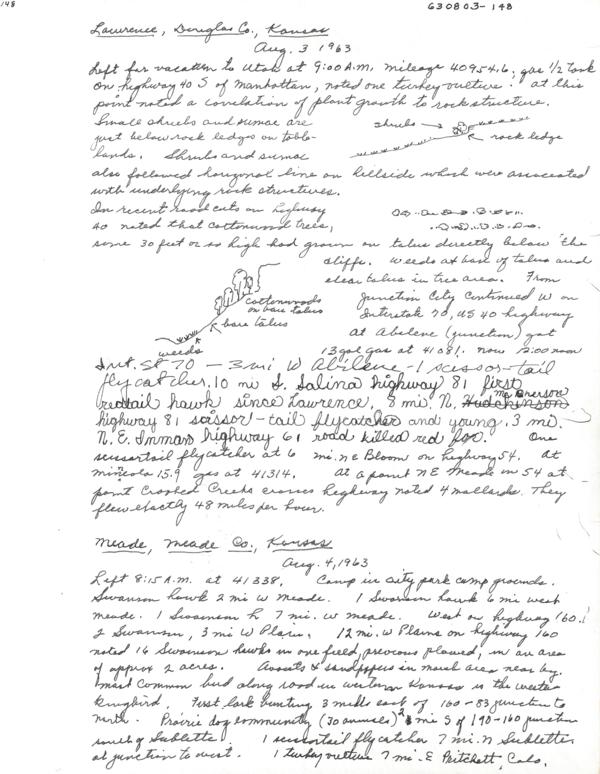 148
630803-148
Lawrence, Douglas Co., Kansas
Aug. 3 1963
Left for vacation to Utah at 9:00 A.M. mileage 40954.6, gas 1/2 tank
on highway 40 S of Manhattan, noted one turkey-vulture. At this
point noted a correlation of plant growth to rock structure.
Small shrubs and sumac are
just below rock ledges on table-
lands. Shrubs and sumac
shrubs
rock ledge
also followed horizonal line on hillside which were associated
with underlying rock structures.
In recent road cuts on highway
40 noted that cottonwood trees,
some 30 feet or so high had grown on talus directly below the
cliffs. Weeds at base of talus and
clear talus in tree area. From
Junction City continued W on
Interstate 70, US 40 highway
at Abilene (junction) got
13 gal gas at 41081. now 12:00 noon
cottonwoods
on bare talus
bare talus
weeds
Int. St 70 - 3 mi W Abilene - 1 scissor-tail
flycatcher, 10 mi S. Salina highway 81 first
redtail hawk since Lawrence, 8 mi. N. McPherson Hutchinson
highway 81 scissor-tail flycatcher and young, 3 mi.
N.E. Inman highway 61 road killed red fox. One
scissortail flycatcher at 6 mi. NE Bloom on highway 54. At
Minneola 15.9 gas at 41314. At a point NE Meade on 54 at
point Crooked Creek crosses highway noted 4 mallards. They
flew exactly 48 miles per hour.
Meade, Meade Co., Kansas
Aug. 4, 1963
Left 8:15 A.M. at 41338. Camp in city park camp grounds.
Swanson hawk 2 mi W Meade. 1 Swanson hawk 6 mi west
Meade. 1 Swanson h 7 mi. W Meade. West on highway 160.
2 Swanson, 3 mi W Plains. 12 mi. W Plains on highway 160
noted 16 Swanson hawks in one field, previous plowed, in an area
of approx 2 acres. Avocets & sandpipers in marsh area near by.
Most common bird along road in western Kansas is the western
kingbird. First lark bunting 3 miles east of 160-83 junction to
north. Prairie dog community (30 animals) 2 mi S of 190-160 junction
south of Sublette. 1 scissortail flycatcher 7 mi. N Sublette
at junction to west. 1 turkey vulture 7 mi. E Pritchett, Colo.